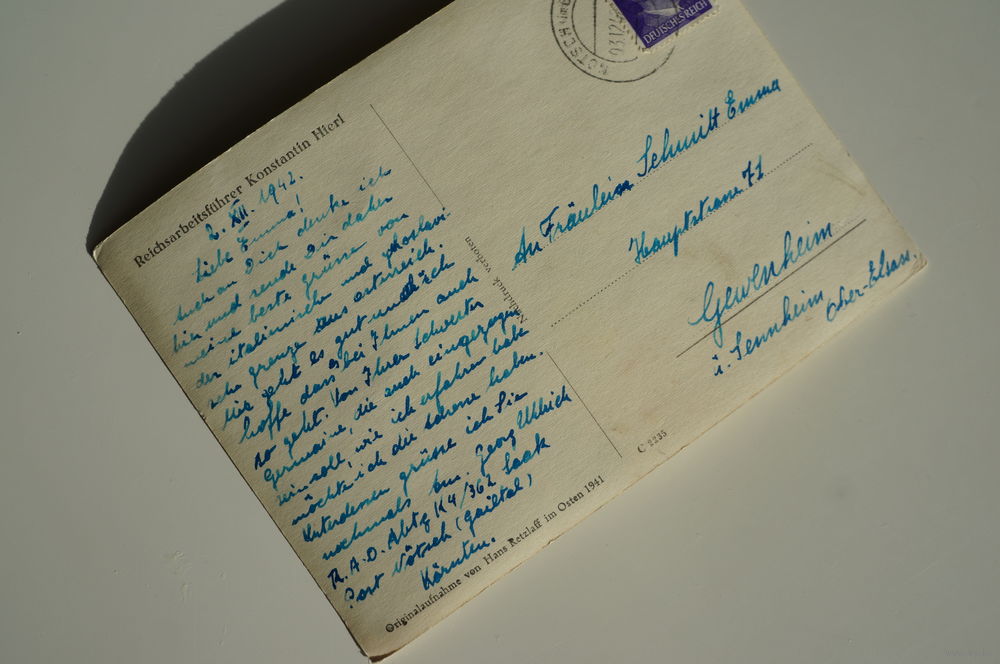 Reichsarbeitsführer Konstantin Hierl
2. XII. 1942.
Liebe Emma!
Auch an Dich denke ich
hin und sende Dir daher
meine beste grüsse von
der italienische und jhoslavi-
sche grenze aus österreich.
Mir geht es gut und ich
hoffe dass bei Ihnen auch
so geht. Von Ihrer Schwester
Germaine, die auch eingezogen
sein soll, wie ich erfahren habe
möchte ich die adresse haben.
Unterdessen grüsse ich Sie
nochmals Arm. Georg Ullrich
R.A.D. Abtg K4/362 Saak
Post Nötsch (gailtal)
Kärnten.
Originalaufnahme von Hans Retzlaff im Osten 1941
Nachdruck verboten
C 2235
NÖTSCH
DEUTSCHES REICH
An Fräulein Schmitt Emma
Hauptstrasse 71
Gewenheim
i. Sennheim
Ober-Elsass.